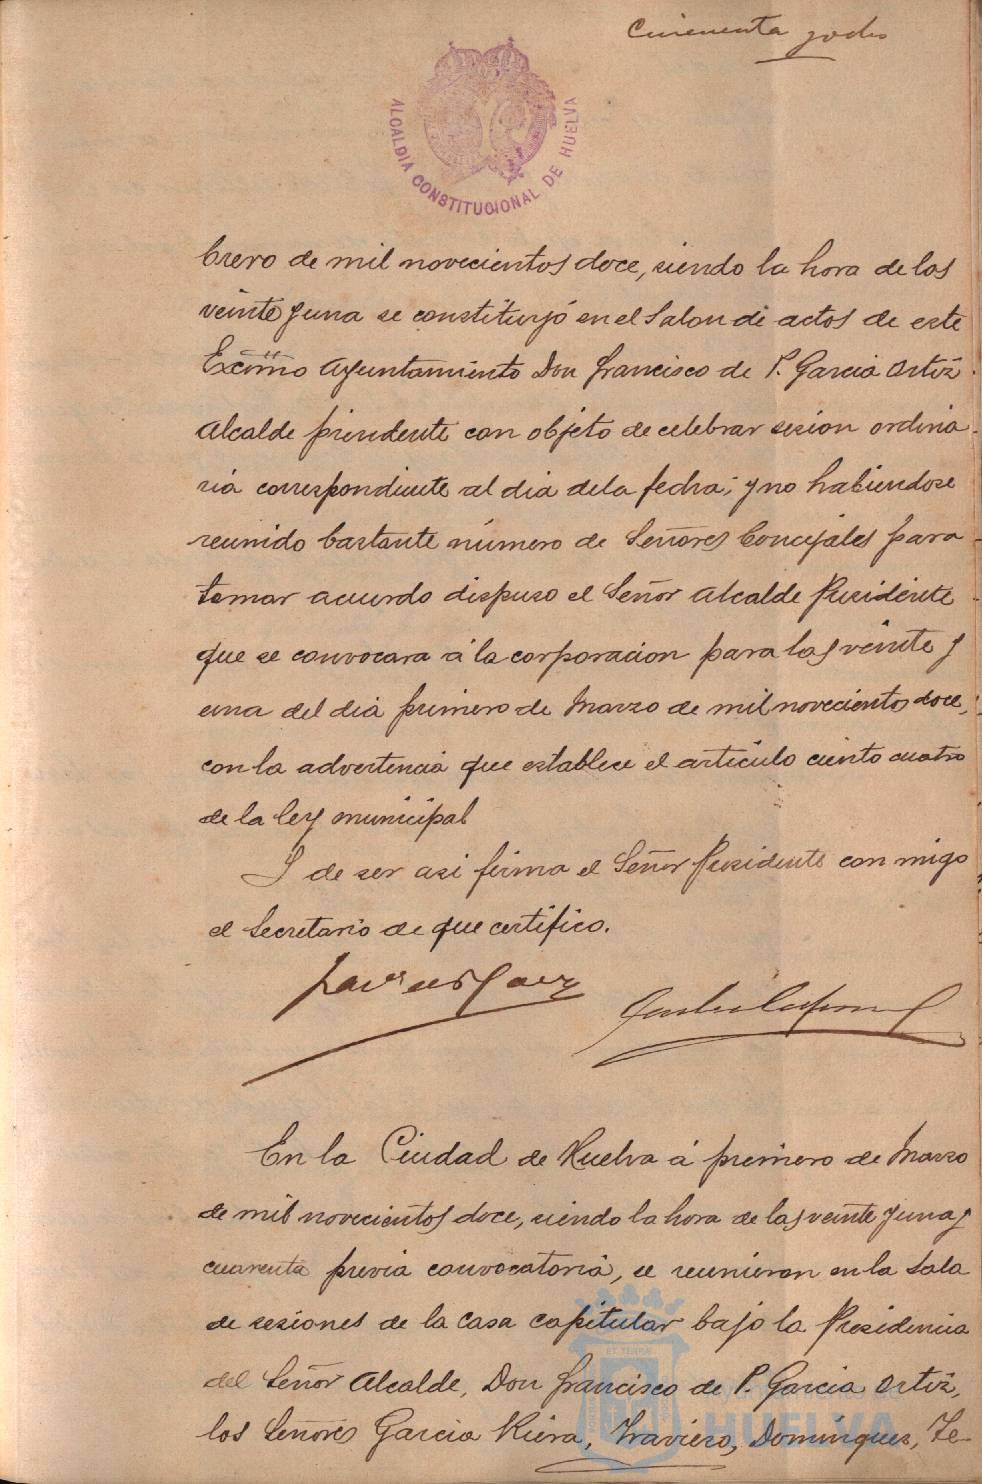 Cincuenta y ocho
ALCALDIA CONSTITUCIONAL DE HUELVA
brero de mil novecientos doce, siendo la hora de las
veinte y una se constituyó en el Salon de actos de este
Excmo Ayuntamiento Don Francisco de P. Garcia Ortiz
Alcalde presidente con objeto de celebrar sesion ordina-
ria correspondiente al dia de la fecha; y no habiendose
reunido bastante número de Señores Concejales para
tomar acuerdo dispuso el Señor Alcalde Presidente
que se convocara á la corporacion para las veinte y
una del dia primero de Marzo de mil novecientos doce,
con la advertencia que establece el articulo ciento cuatro
de la ley municipal
Y de ser asi firma el Señor Presidente con migo
el Secretario de que certifico.
En la Ciudad de Huelva á primero de Marzo
de mil novecientos doce, siendo la hora de las veinte y una y
cuarenta previa convocatoria, se reunieron en la Sala
de sesiones de la Casa capitular bajo la Presidencia
del Señor Alcalde, Don Francisco de P. Garcia Ortiz,
los Señores Garcia Riera, Traviero, Dominguez, Te-
Ayuntamiento de
HUELVA